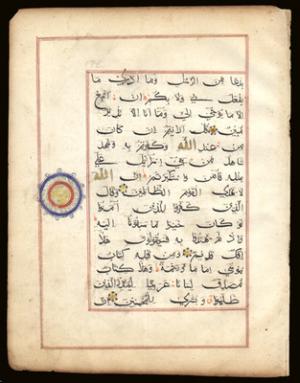 بدعا من الرسل وما ادري ما
يفعل بي ولا بكم ان اتبع
الا ما يوحى الي وما انا الا نذير
مبين قل ارايتم ان كان
من عند الله وكفرتم به وشهد
شاهد من بني اسرائيل على
مثله فامن واستكبرتم ان الله
لا يهدي القوم الظالمين وقال
الذين كفروا للذين امنوا
لو كان خيرا ما سبقونا اليه
واذ لم يهتدوا به فسيقولون هذا
افك قديم ومن قبله كتاب
موسى اماما ورحمة وهذا كتاب
مصدق لسانا عربيا لينذر الذين
ظلموا وبشرى للمحسنين ان